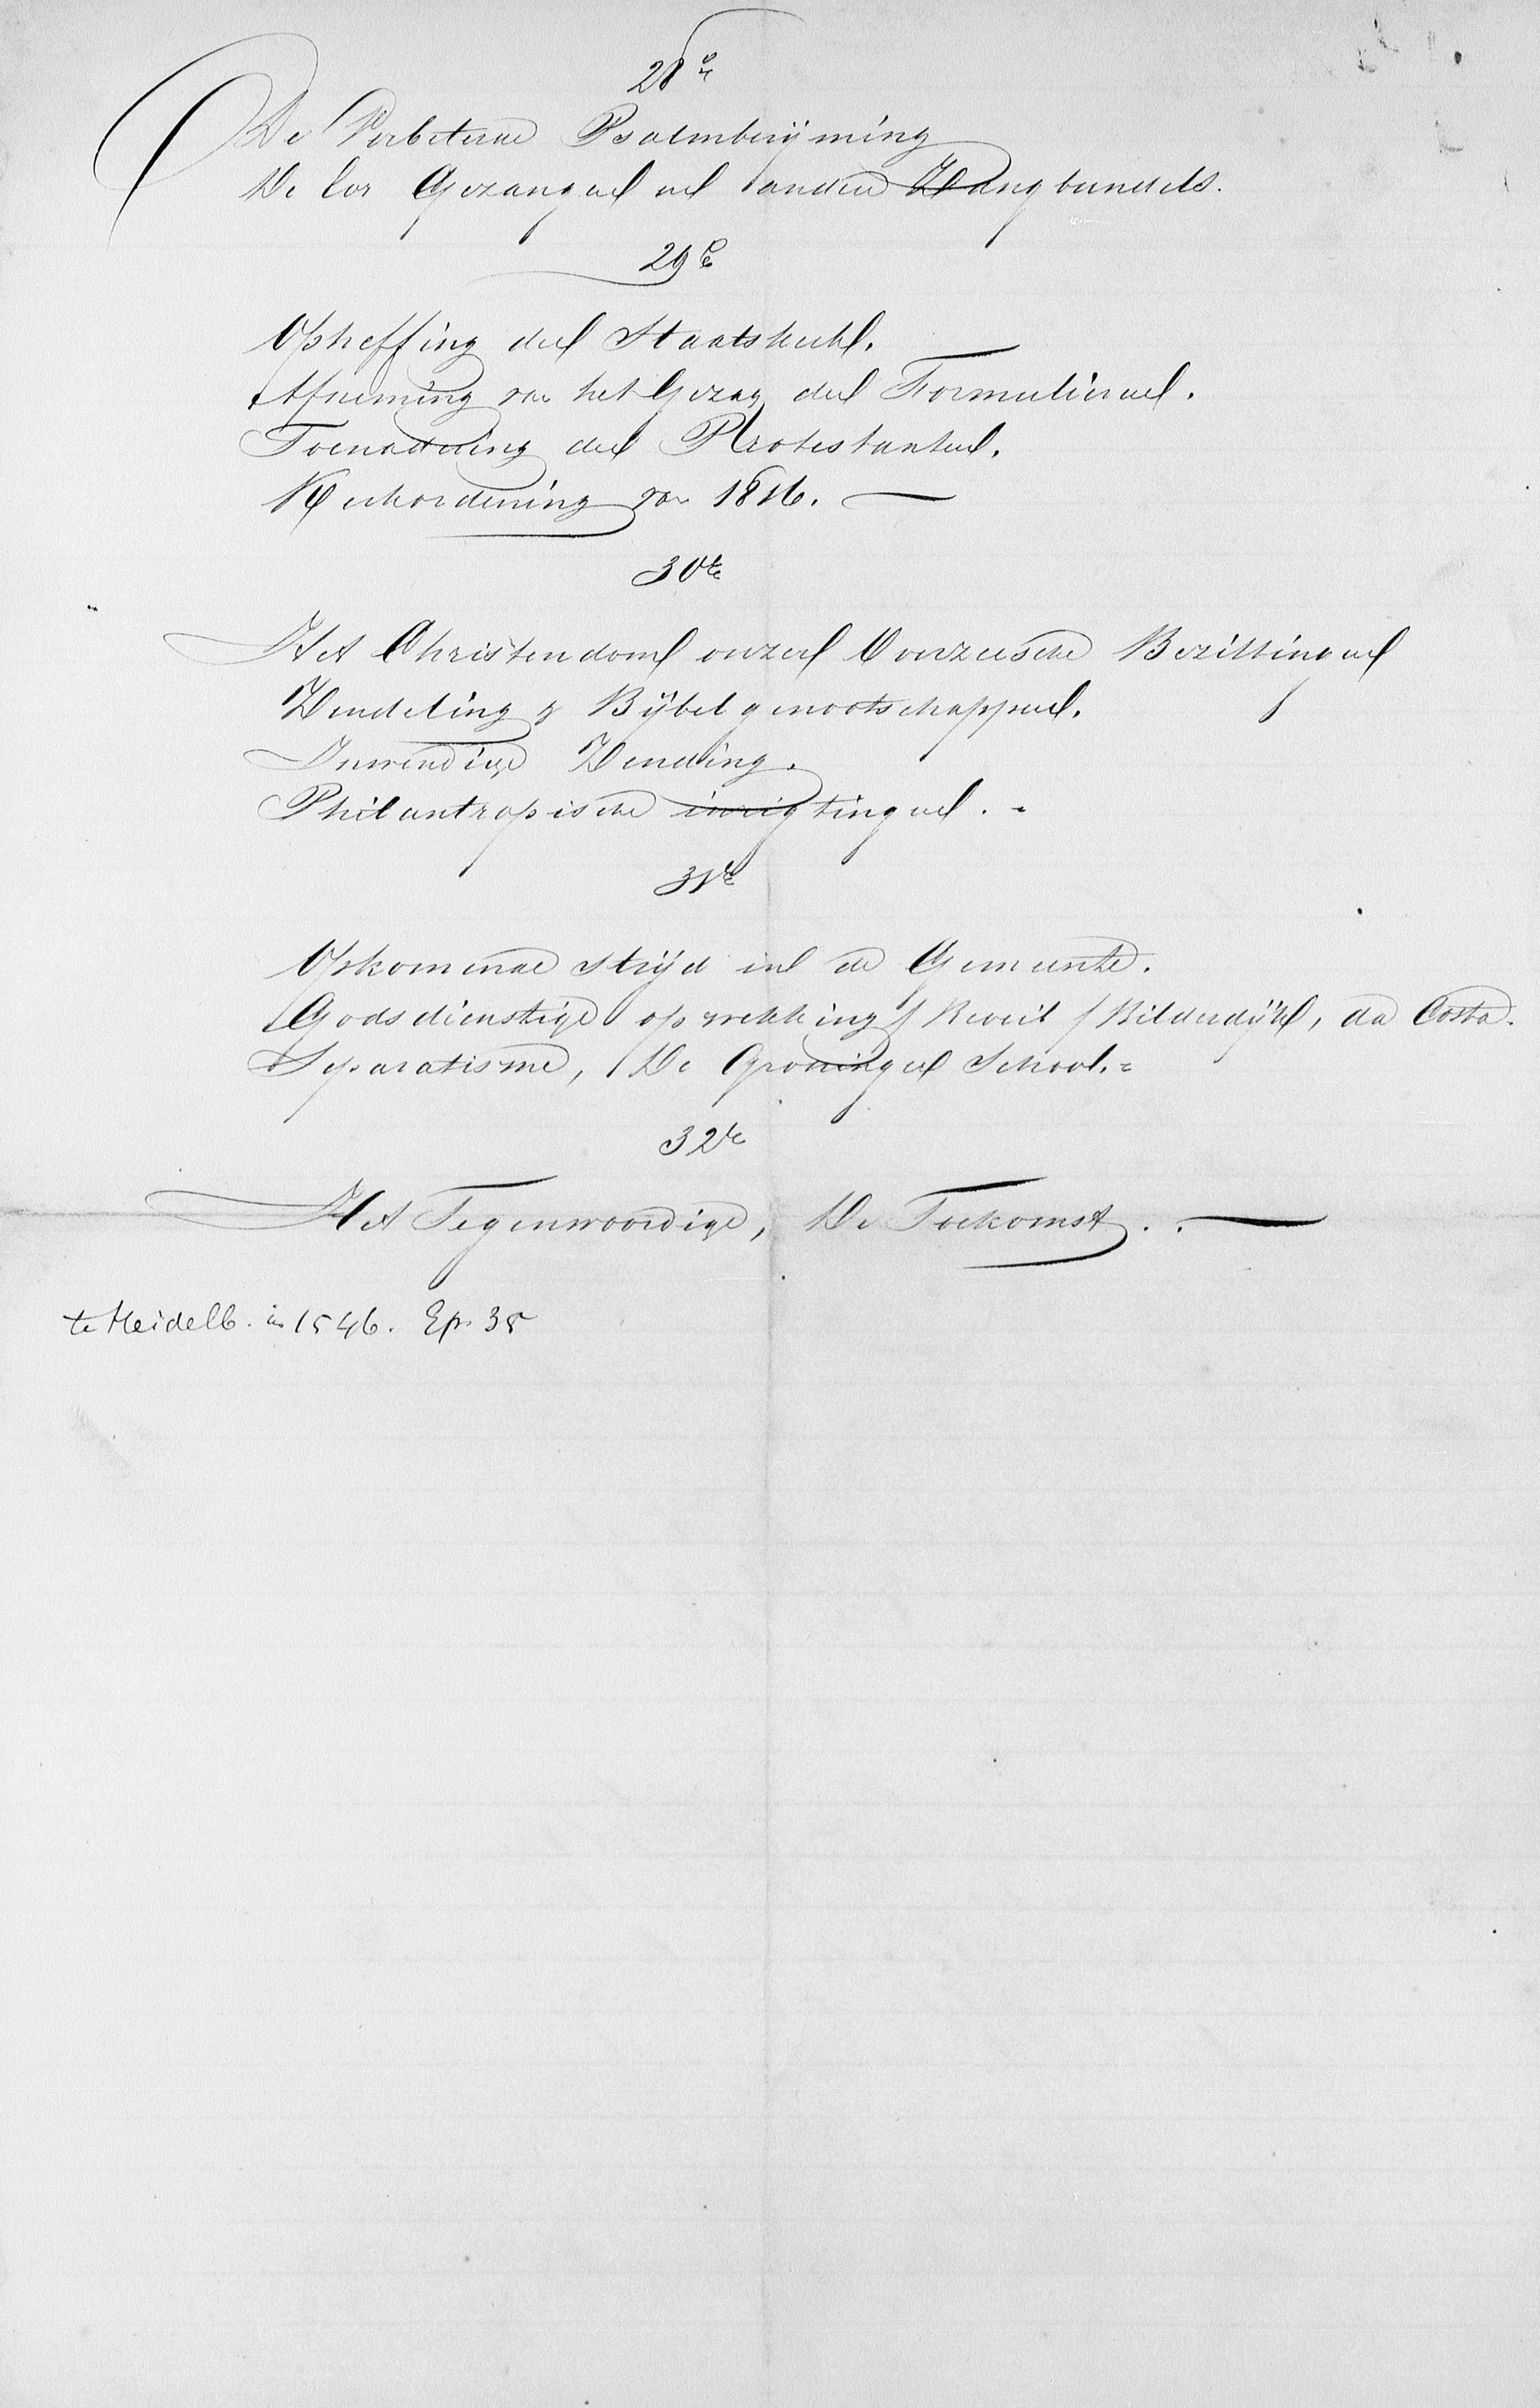 28e
De Verbeterde Psalmberijming
De Ev. Gezangen en andere Zangbundels.
29e
Opheffing der Staatskerk.
Afneming van het Gezag der Formulieren.
Toenadering der Protestanten.
Kerkordening van 1816. —
30te
Het Christendom onzer Overzeesche Bezittingen
Zendeling & Bijbelgenootschappen.
Inwendige Zending.
Philantropische inrigtingen. -
31te
Opkomende strijd in de Gemeente.
Godsdienstige opwekking / Reveil / Bilderdijk, da Costa.
Separatisme, De Groninger School. =
32te
Het Tegenwoordige, De Toekomst. . —
te Heidelb. in 1546. Ep. 35